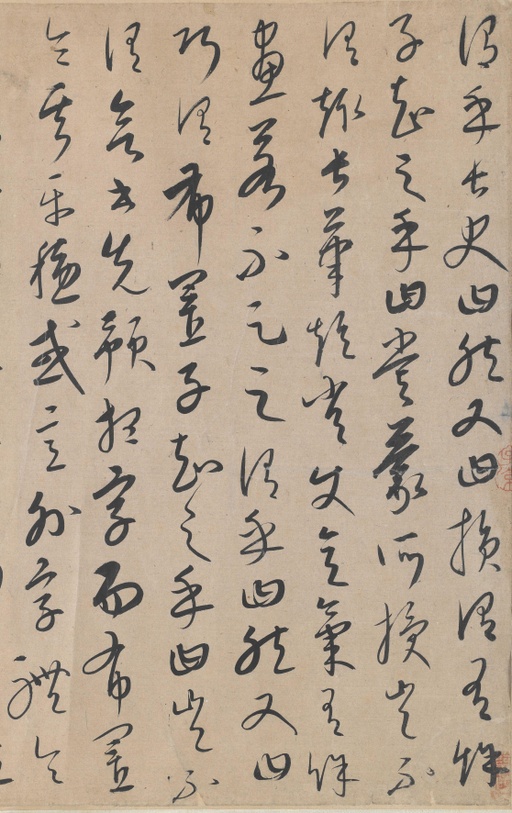 謂乎長史曰然又曰損謂有餘
子知之乎曰嘗蒙所授豈不
謂趣長筆短常使意氣有餘
畫若不足之謂乎曰然又曰
巧謂布置子知之乎曰豈不
謂欲書先預想字而布置
令其平穩或意外字體令